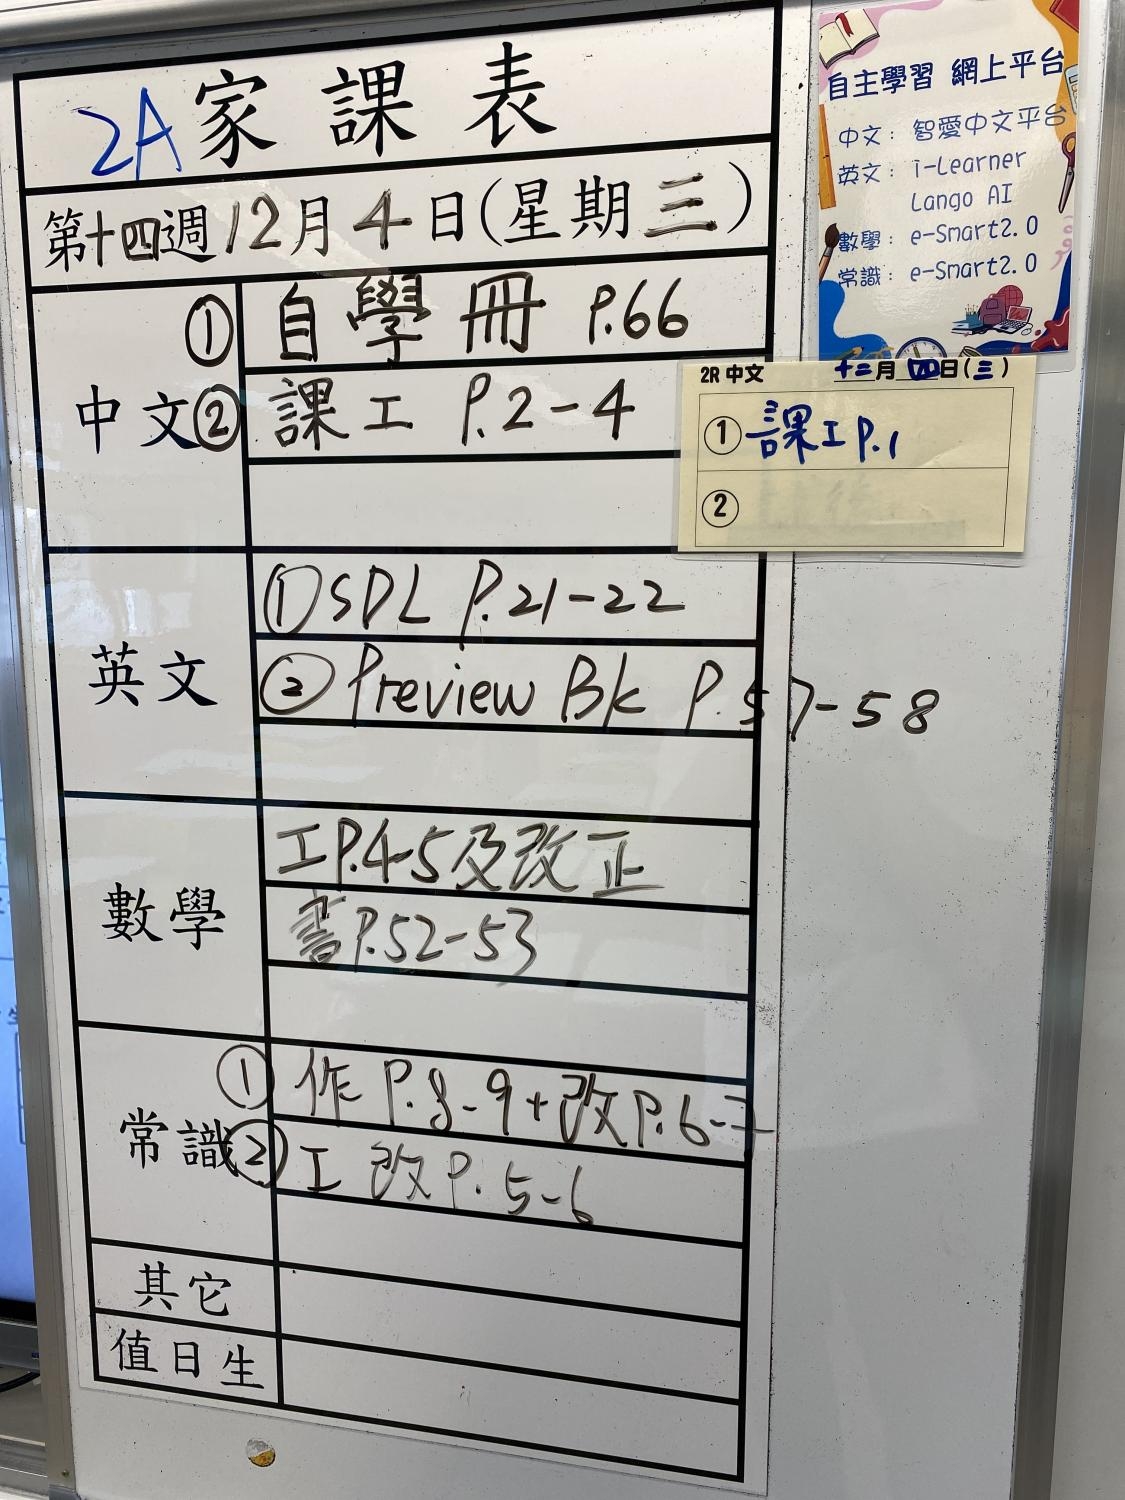 2A 家課表
第十四週 12月 4 日(星期三)
中文
① 自學冊 P.66
② 課工 P.2-4
英文
① SDL P.21-22
② Preview Bk P.57-58
數學
工P.4-5及改正
書P.52-53
常識
① 作 P.8-9+改P.6-7
② 工 改P.5-6
其它
值日生
自主學習 網上平台
中文: 智愛中文平台
英文: i-Learner
Lango AI
數學: e-Smart2.0
常識: e-Smart2.0
2R 中文 十二月四日(三)
① 課工P.1
②